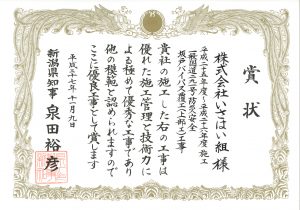 賞状
株式会社いさはい組様
平成二十五年度～平成二十六年度施工
一般国道二九一号防災安全
坂戸バイパス覆工(上部工)工事
貴社の施工した右の工事は
優れた施工管理と技術力に
よる極めて優秀な工事であり
他の模範と認められますので
ここに優良工事として賞します
平成二十七年十一月九日
新潟県知事 泉田裕彦